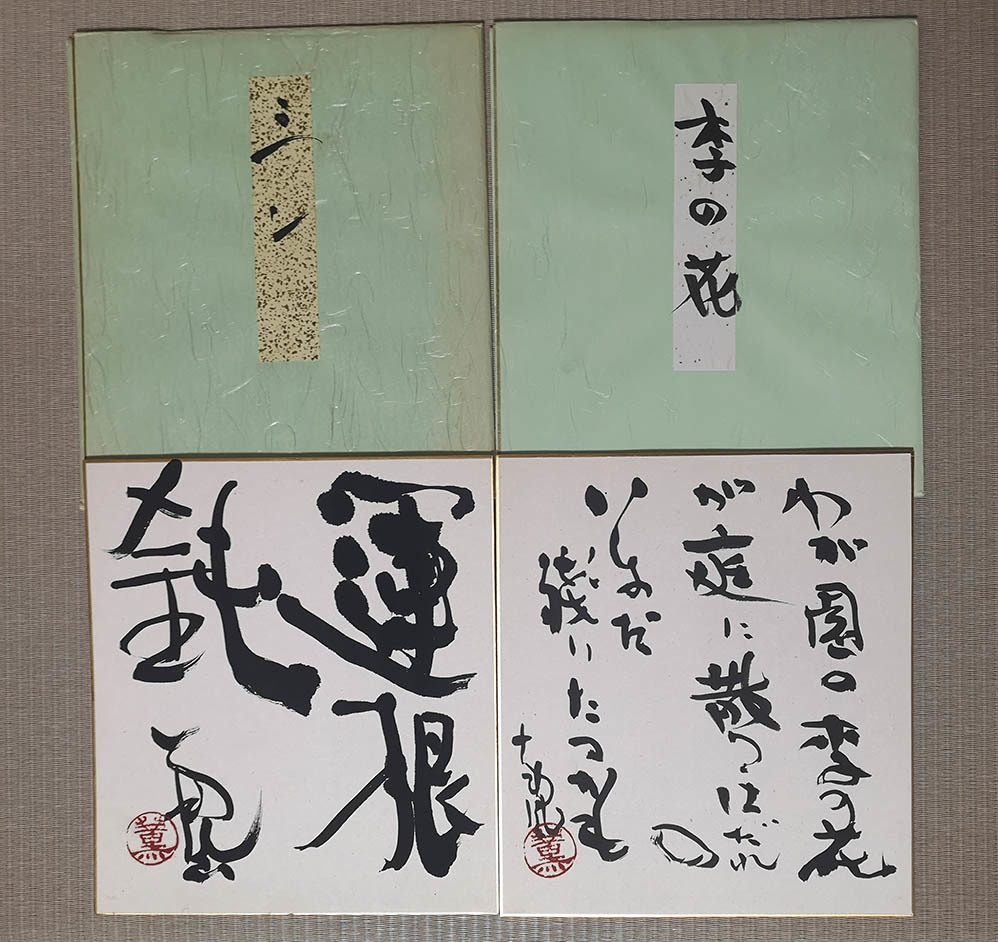 シン
李の花
運根
鈍
薫
薫
わが園の李の花
が庭に散るはだれ
の
いまだ
残りたるかも
薫